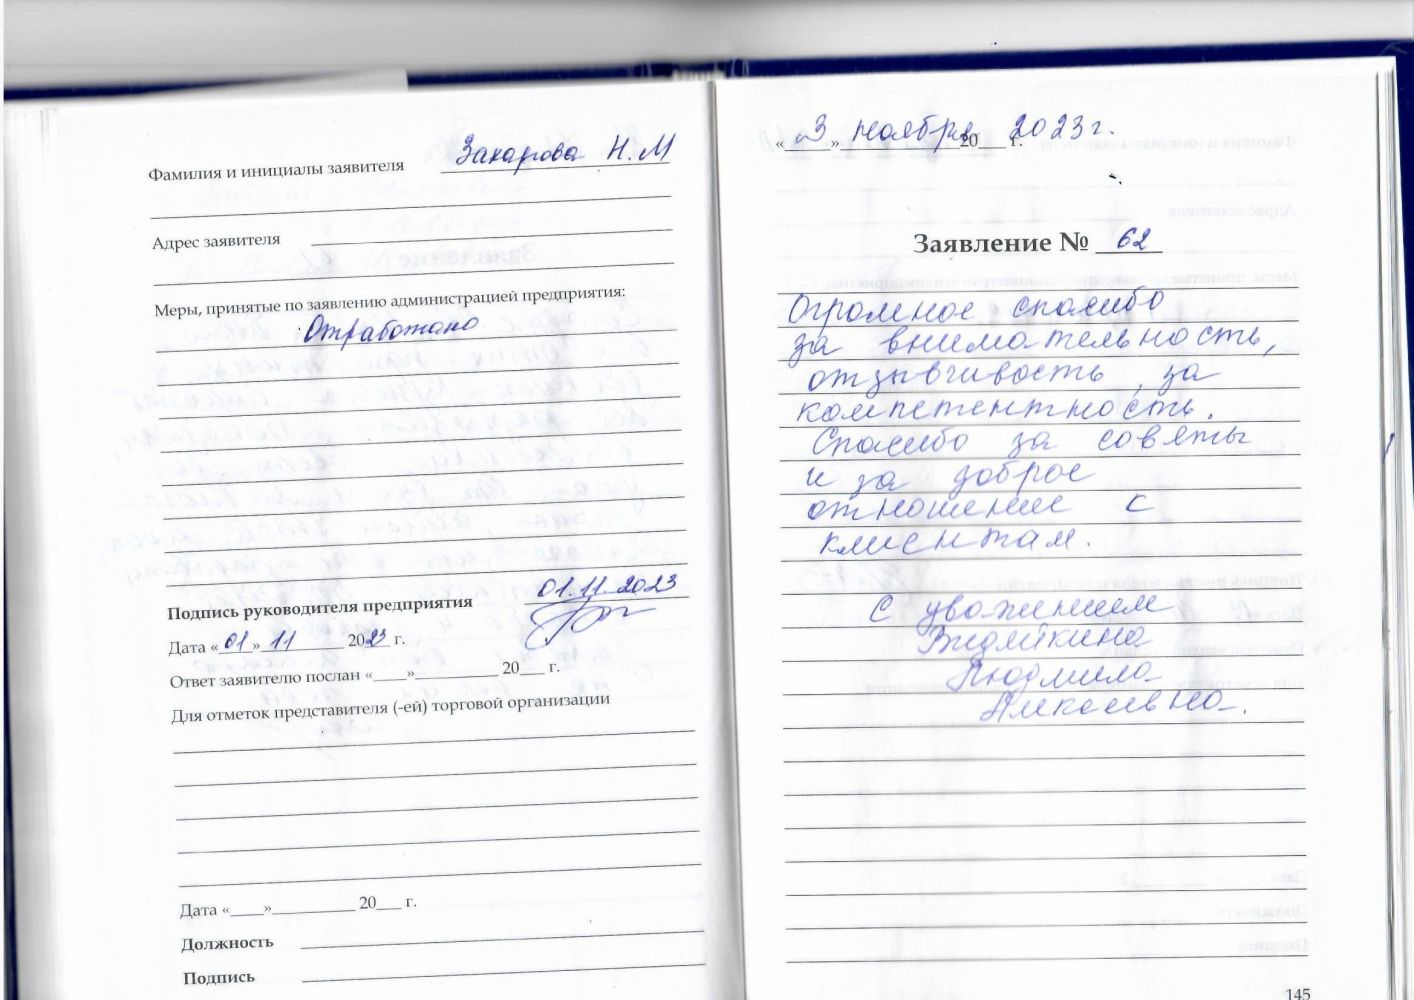 Фамилия и инициалы заявителя Захарова Н.М
Адрес заявителя
Меры, принятые по заявлению администрацией предприятия:
Отработано
01.11.2023
Подпись руководителя предприятия
Дата «01» 11 2023 г.
Ответ заявителю послан «____»__________ 20___ г.
Для отметок представителя (-ей) торговой организации
Дата «____»__________ 20___ г.
Должность
Подпись
«3» ноября 2023г. 20___ г.
Заявление № 62
Огромное спасибо
за внимательность,
отзывчивость, за
компетентность.
Спасибо за советы
и за доброе
отношение с
клиентам.
С уважением
Видяйкина
Людмила
Алексеевна.
145